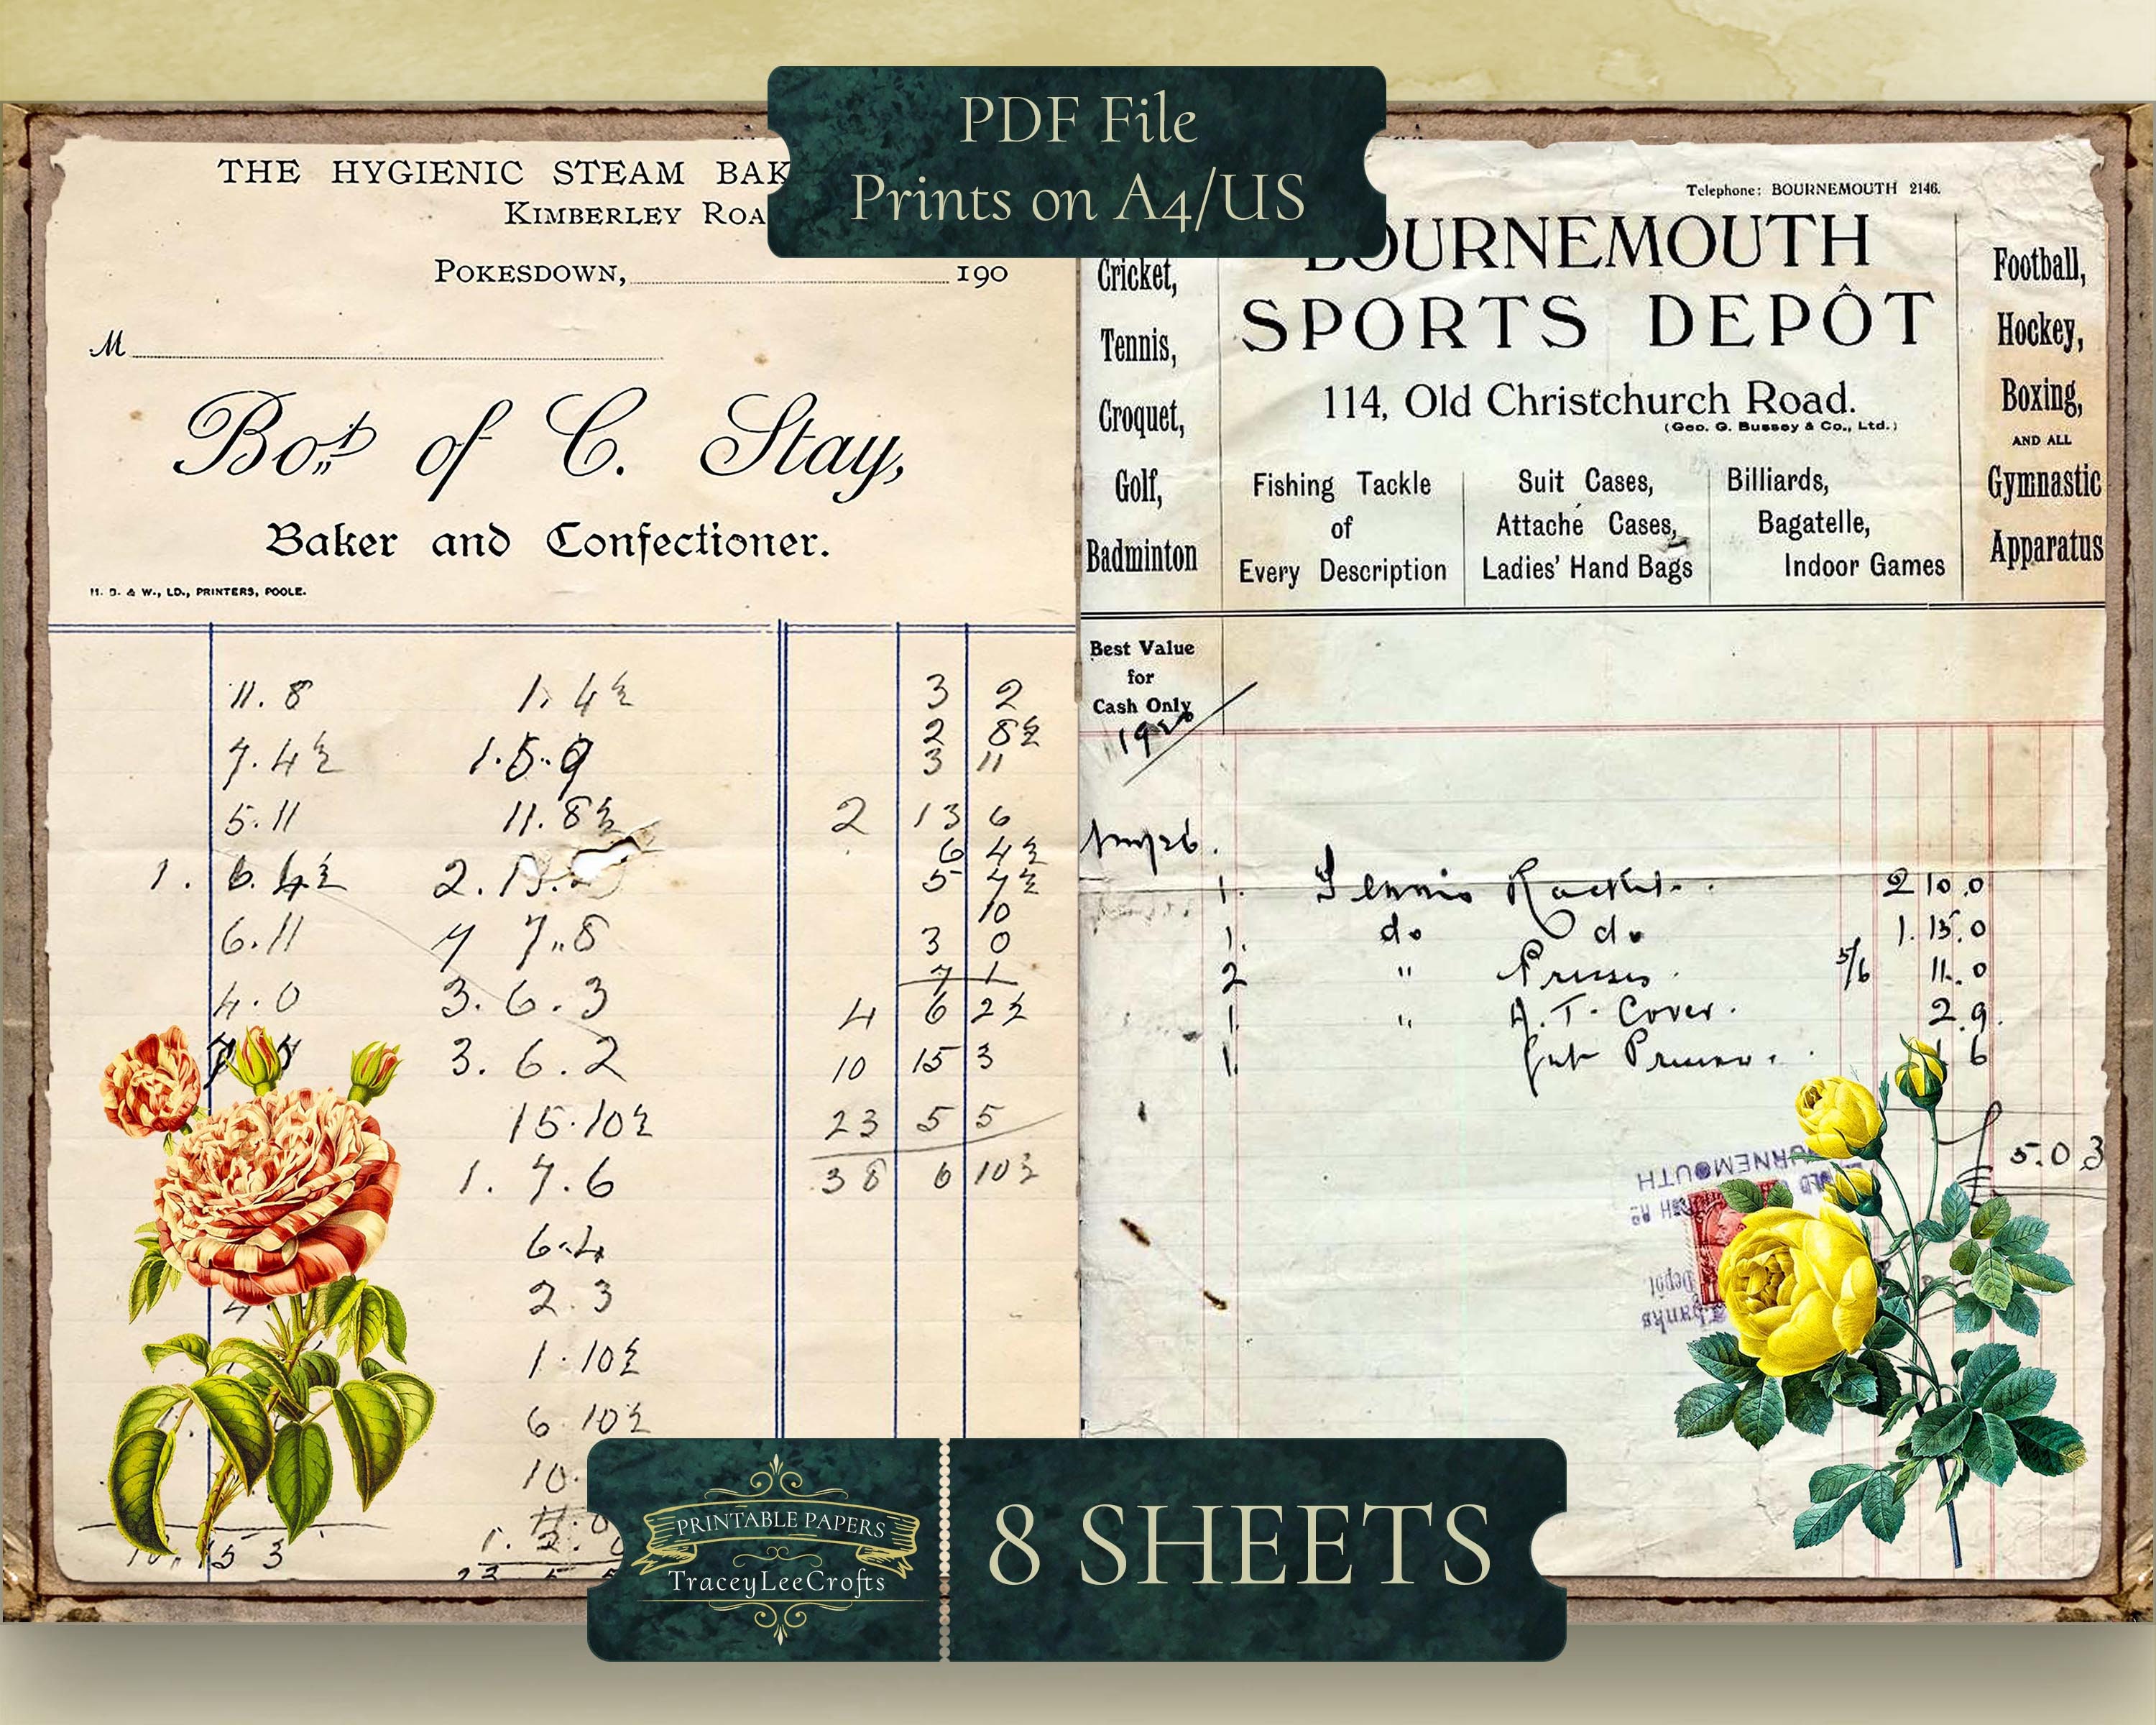 PDF File
Prints on A4/US
THE HYGIENIC STEAM BAK
KIMBERLEY ROA
POKESDOWN, 190
M
Bot. of C. Stay,
Baker and Confectioner.
H. D. & W., LD., PRINTERS, POOLE.
11. 8 1. 4½ 3 2
7. 4½ 1.5.9 2 8½
3 11
5.11 11.8½ 2 13 6
6 4½
1. 6. 4½ 2. 5 7½
10
6.11 7..8 3 0
7 1
4.0 3.6.3 4 6 2½
3.6.2 10 15 3
15.10½ 23 5 5
1. 7.6 38 6 10½
6.4
2.3
1.10½
6 10½
10.
Telephone: BOURNEMOUTH 2146.
BOURNEMOUTH
SPORTS DEPÔT
114, Old Christchurch Road.
(Geo. G. Bussey & Co., Ltd.)
Cricket,
Tennis,
Croquet,
Golf,
Badminton
Football,
Hockey,
Boxing,
AND ALL
Gymnastic
Apparatus
Fishing Tackle
of
Every Description
Suit Cases,
Attaché Cases,
Ladies' Hand Bags
Billiards,
Bagatelle,
Indoor Games
Best Value
for
Cash Only
1. Tennis Racket. 2 10.0
1. do do 1.15.0
2 " Presses 5/6 11.0
1. " A.T. Cover. 2.9.
1. 6
£5.0 3
BOURNEMOUTH
Depot
Thanks
PRINTABLE PAPERS
TraceyLeeCrofts
8 SHEETS